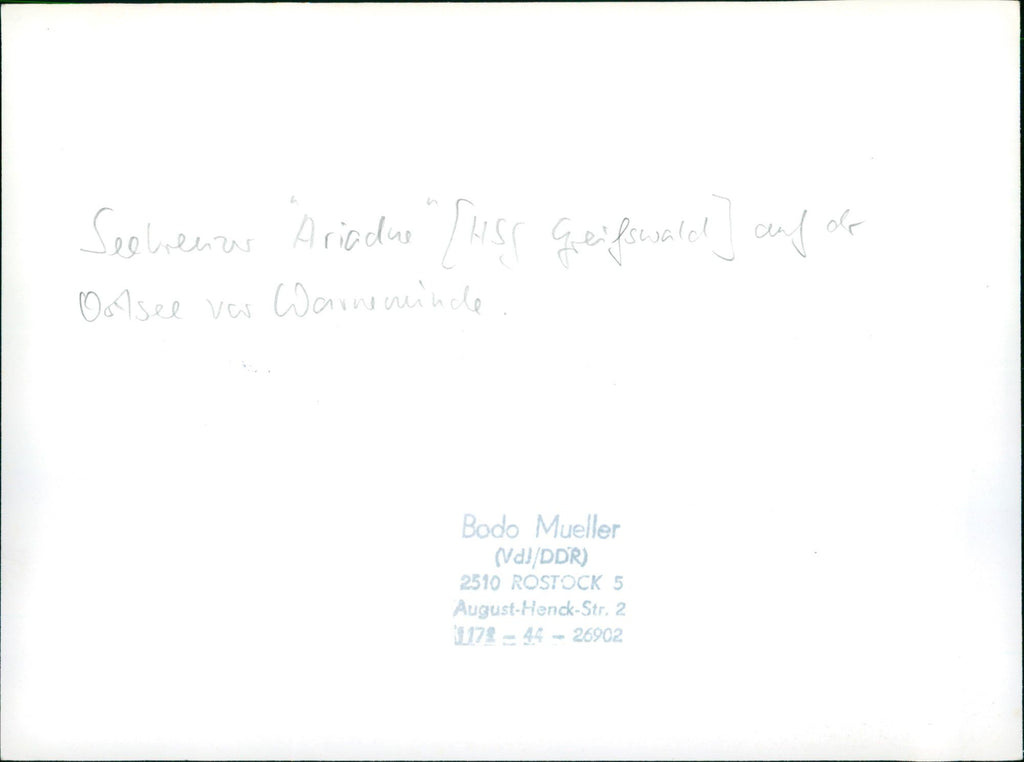 Seekreuzer "Ariadne" [HSG Greifswald] auf der
Ostsee vor Warnemünde.
Bodo Mueller
(VdJ/DDR)
2510 ROSTOCK 5
August-Henck-Str. 2
44 - 26902